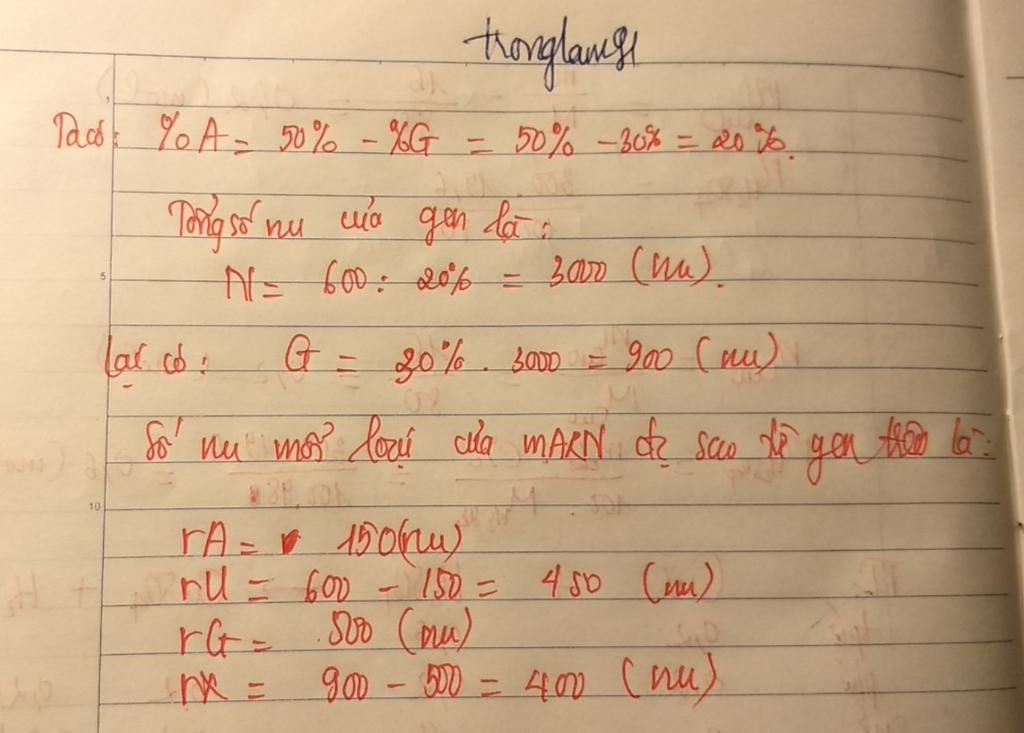 tronglamg1
Ta có: %A = 50% - %G = 50% - 30% = 20%.
Tổng số nu của gen là:
N = 600 : 20% = 3000 (nu).
Lại có: G = 30% . 3000 = 900 (nu)
Số nu mỗi loại của mARN đc sao từ gen trên là:
rA = 150 (nu)
rU = 600 - 150 = 450 (nu)
rG = 500 (nu)
rX = 900 - 500 = 400 (nu)